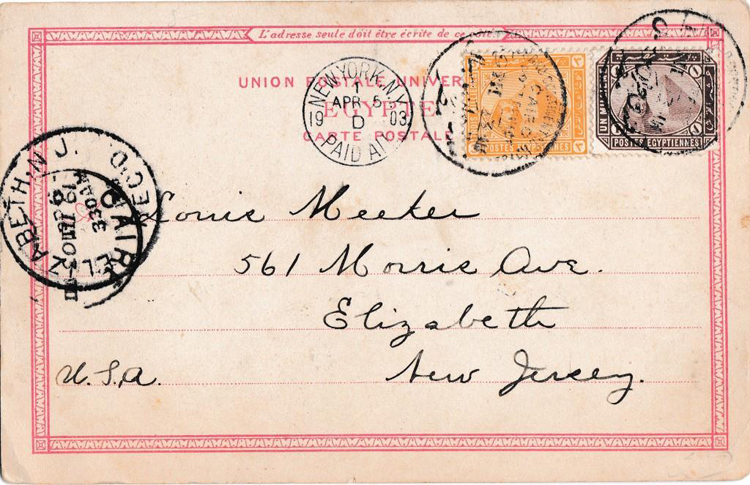 L'adresse seule doit être écrite de ce
UNION POSTALE UNIVER
EGYPTE
CARTE POSTALE
NEW YORK, N.Y.
1
APR 5
19 03
D
PAID AL
CAIRO
POSTES EGYPTIENNES
ELIZABETH, N.J.
REC'D
CAIR
Louis Meeker
561 Morris Ave.
Elizabeth
U.S.A. New Jersey.